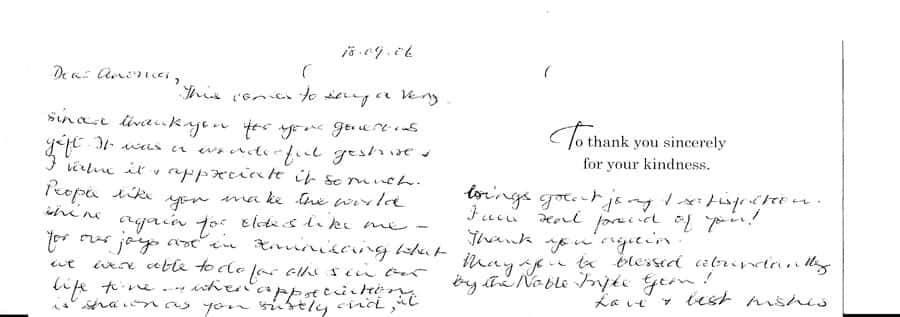 18.09.06
Dear
This comes to say a very
sincere thank you for your generous
gift. It was a wonderful gesture &
I value it & appreciate it so much.
People like you make the world
shine again for elders like me –
for our joys are in reminiscing what
we were able to do for others in our
life time – when appreciation
is shown as you surely did, it
To thank you sincerely
for your kindness.
brings great joy & satisfaction.
I am real proud of you!
Thank you again.
May you be blessed abundantly
by the Noble Triple Gem!
Love & best wishes